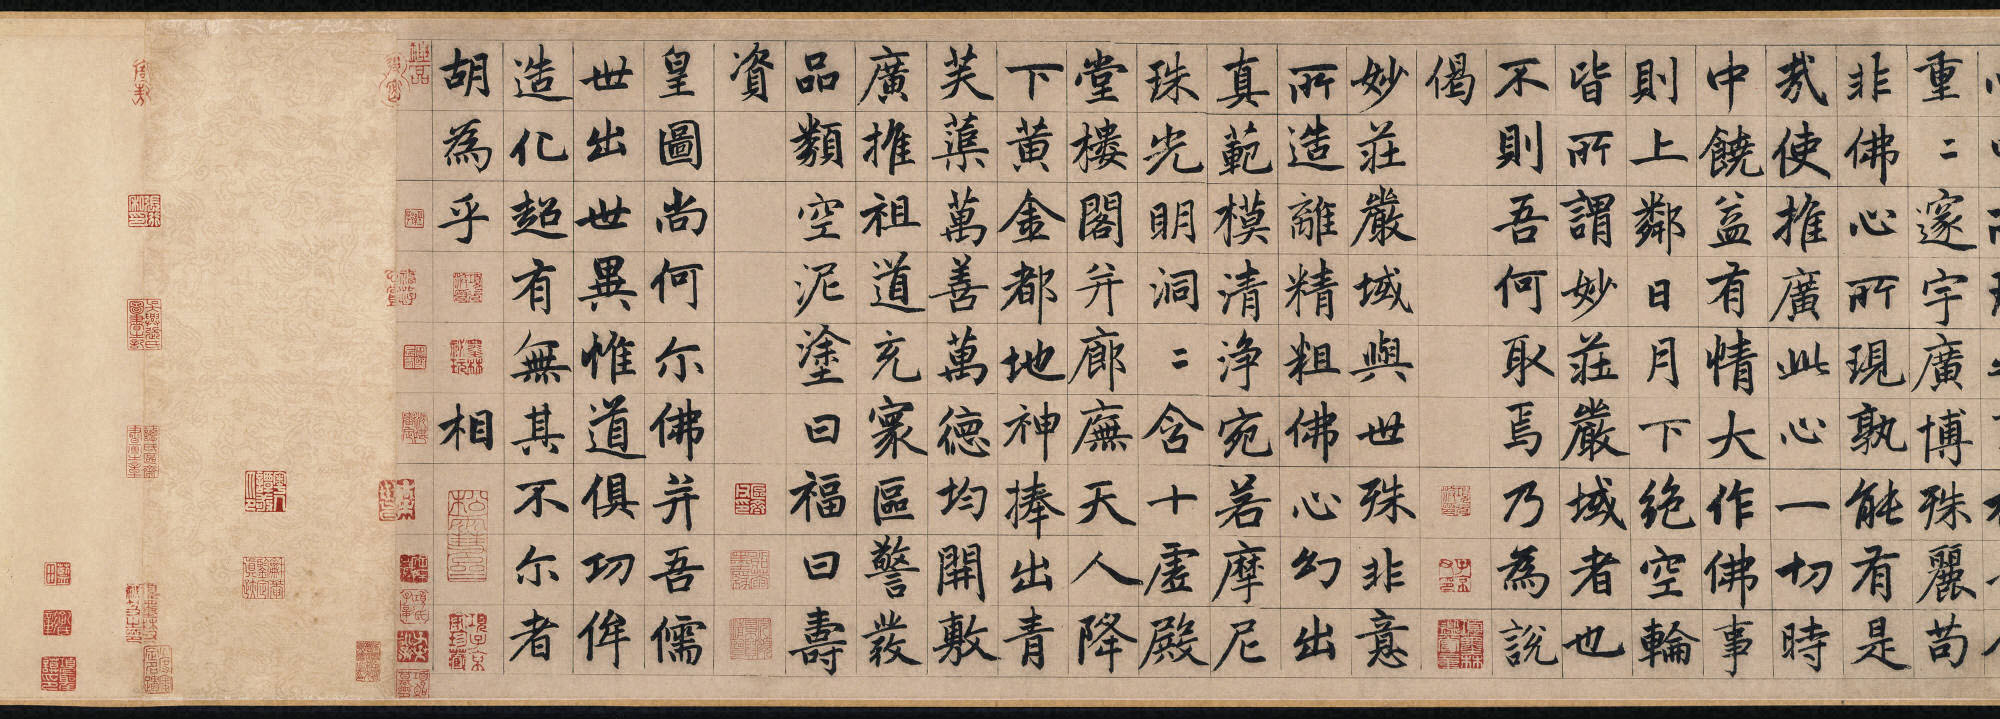 重二邃宇廣博殊麗苟
非佛心所現孰能有是
哉使推廣此心一切時
中饒益有情大作佛事
則上鄰日月下絶空輪
皆所謂妙莊嚴域者也
不則吾何取焉乃為說
偈
妙莊嚴域與世殊非意
所造離精粗佛心幻出
真範模清淨宛若摩尼
珠光明洞二含十虛殿
堂樓閣并廊廡天人降
下黃金都地神捧出青
芙蕖萬善萬德均開敷
廣推祖道充寰區警發
品類空泥塗曰福曰壽
資
皇圖尚何尒佛并吾儒
世出世異惟道俱功侔
造化超有無其不尒者
胡為乎相